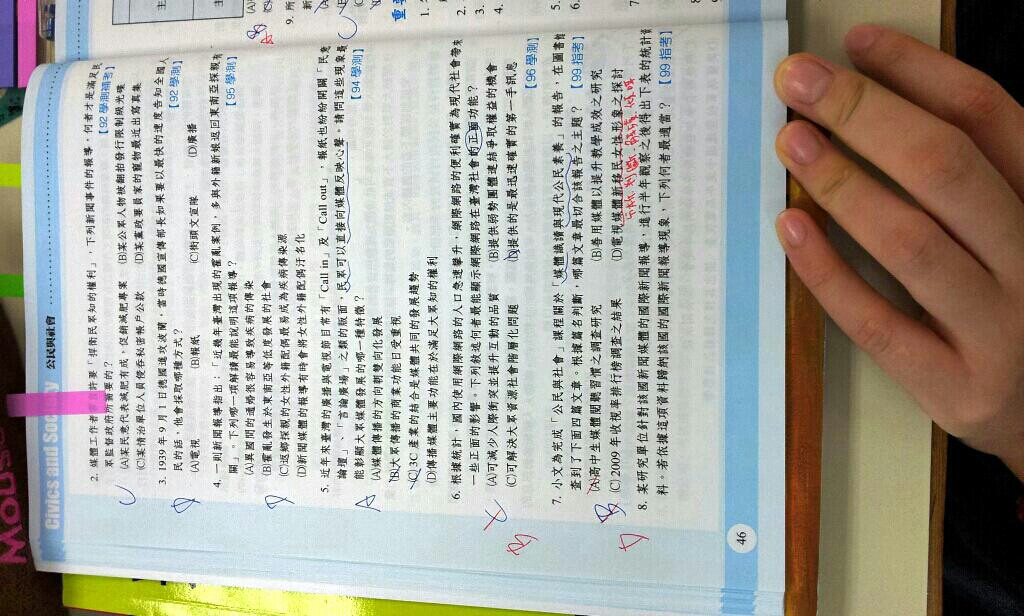 Civics and Society 公民與社會
2. 媒體工作者常說要「捍衛民眾知的權利」,下列新聞事件的報導,何者才是滿足民
眾監督政府所需要的? 【92 學測補考】
(A)某民意代表減肥有成,促銷減肥專案 (B)某公眾人物被翻拍發行限制級光碟
(C)某情治單位人員侵吞秘密帳戶公款 (D)某黨政要員家的寵物最近出寫真集
3. 1939 年 9 月 1 日德國進攻波蘭,當時德國宣傳部長如果要以最快的速度告知全國人
民的話,他會採取哪種方式? 【92 學測】
(A)電視 (B)報紙 (C)街頭文宣隊 (D)廣播
4. 一則新聞報導指出:「近幾年臺灣出現的霍亂案例,多與外籍新娘返回東南亞探親有
關」。下列哪一項解讀最能說明這項報導? 【95 學測】
(A)異國間的通婚很容易導致疾病的傳染
(B)霍亂發生於東南亞等低度發展的社會
(C)返鄉探親的女性外籍配偶最易成為疾病傳染源
(D)新聞媒體的報導有時會將女性外籍配偶汙名化
5. 近年來臺灣的廣播與電視節目常有「Call in」及「Call out」,報紙也紛紛開闢「民意
論壇」、「言論廣場」之類的版面,民眾可以直接向媒體反映心聲。請問這些現象最
能彰顯大眾媒體發展的哪一種特徵? 【94 學測】
(A)媒體傳播的方向朝雙向化發展
(B)大眾傳播的商業功能日受重視
(C)3C 產業的結合是媒體共同的發展趨勢
(D)傳播媒體主要功能在於滿足大眾知的權利
6. 根據統計,國內使用網際網路的人口急速攀升,網際網路的便利確實為現代社會帶來
一些正面的影響。下列敘述何者最能顯示網際網路在臺灣社會的正面功能?
(A)可減少人際衝突並提升互動的品質 (B)提供弱勢團體連結爭取權益的機會
(C)可解決大眾資源社會階層化問題 (D)提供的是最迅速確實的第一手訊息
【96 學測】
7. 小文為完成「公民與社會」課程關於「媒體識讀與現代公民素養」的報告,在圖書館
查到了下面四篇文章。根據篇名判斷,哪篇文章最切合該報告之主題? 【99 指考】
(A)高中生媒體閱聽習慣之調查研究 (B)善用媒體以提升教學成效之研究
(C) 2009 年收視率排行榜調查之結果 (D)電視媒體新移民女性形象之探討
8. 某研究單位針對該國新聞媒體的國際新聞報導,進行半年觀察之後得出下表的統計資
料。若依據這項資料歸納該國的國際新聞報導現象,下列何者最適當? 【99 指考】
46